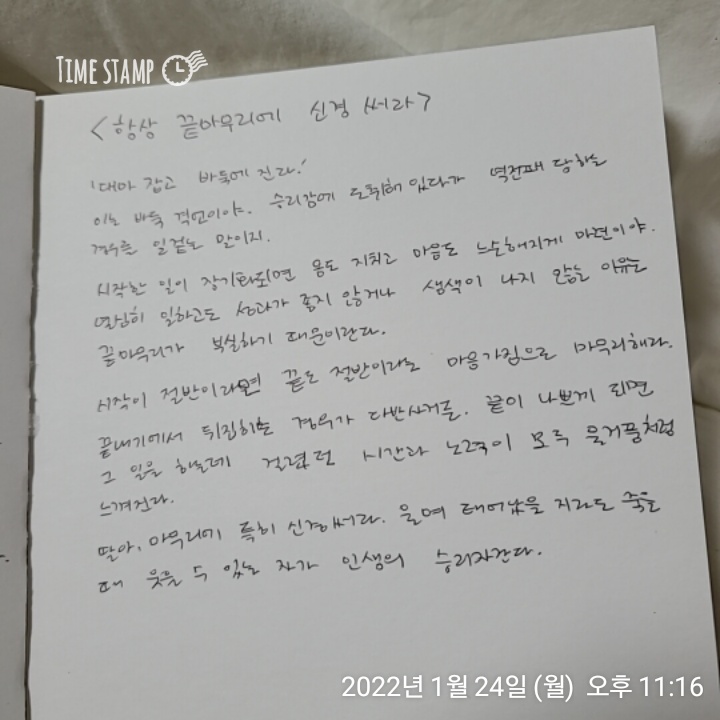 TIME STAMP
<항상 끝마무리에 신경 써라>
'대마 잡고 바둑에 진다.'
이는 바둑 격언이야. 승리감에 도취해 있다가 역전패 당하는
경우를 일컫는 말이지.
시작한 일이 장기화되면 몸도 지치고 마음도 느슨해지게 마련이야.
열심히 일하고도 성과가 좋지 않거나 생색이 나지 않는 이유는
끝마무리가 부실하기 때문이란다.
시작이 절반이라면 끝도 절반이라는 마음가짐으로 마무리해라.
끝내기에서 뒤집히는 경우가 다반사거든. 끝이 나쁘게 되면
그 일을 하는데 걸렸던 시간과 노력이 모두 물거품처럼
느껴진다.
딸아, 마무리에 특히 신경써라. 울며 태어났을 지라도 죽을
때 웃을 수 있는 자가 인생의 승리자란다.
2022년 1월 24일 (월) 오후 11:16